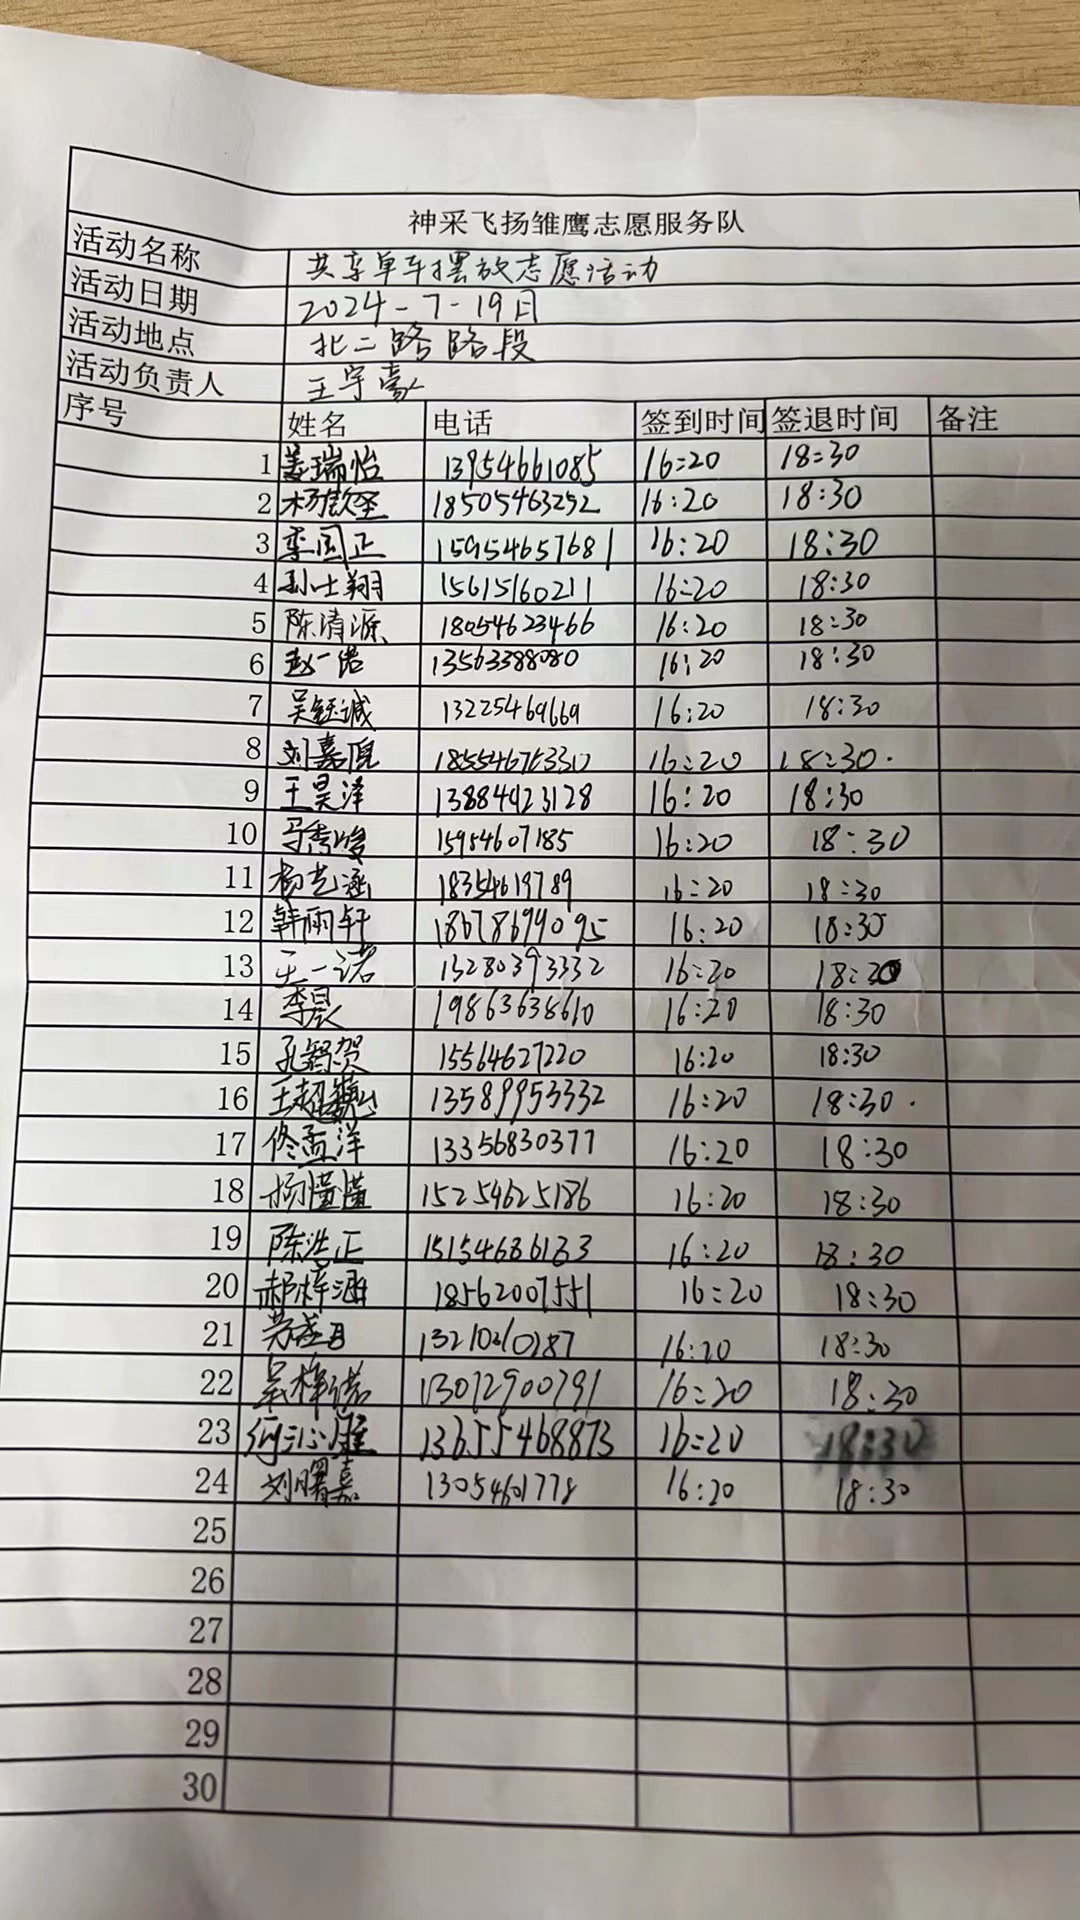 神采飞扬雏鹰志愿服务队
活动名称 共享单车摆放志愿活动
活动日期 2024-7-19日
活动地点 北二路路段
活动负责人 王宇豪
序号 姓名 电话 签到时间 签退时间 备注
1 姜瑞怡 13954661085 16:20 18:30
2 杨钦圣 18505463252 16:20 18:30
3 李国正 15954657681 16:20 18:30
4 孙士翔 15615160211 16:20 18:30
5 陈清源 18054623466 16:20 18:30
6 赵一诺 13563388080 16:20 18:30
7 吴钰诚 13225469669 16:20 18:30
8 刘嘉 16:20 18:30
9 王昊泽 13884923128 16:20 18:30
10 马秀峻 15954607185 16:20 18:30
11 杨艺涵 18354619789 16:20 18:30
12 韩雨轩 18678699095 16:20 18:30
13 王一诺 13280393332 16:20 18:30
14 李晟 19863638610 16:20 18:30
15 孔贺 15564627220 16:20 18:30
16 王超 13589953332 16:20 18:30
17 佟孟洋 13356830377 16:20 18:30
18 杨 15254625186 16:20 18:30
19 陈浩正 15154686133 16:20 18:30
20 郝梓涵 18562007551 16:20 18:30
21 16:20 18:30
22 吴梓诺 13072900791 16:20 18:30
23 何沁 13655468873 16:20 18:30
24 刘曙嘉 13054601778 16:20 18:30
25
26
27
28
29
30